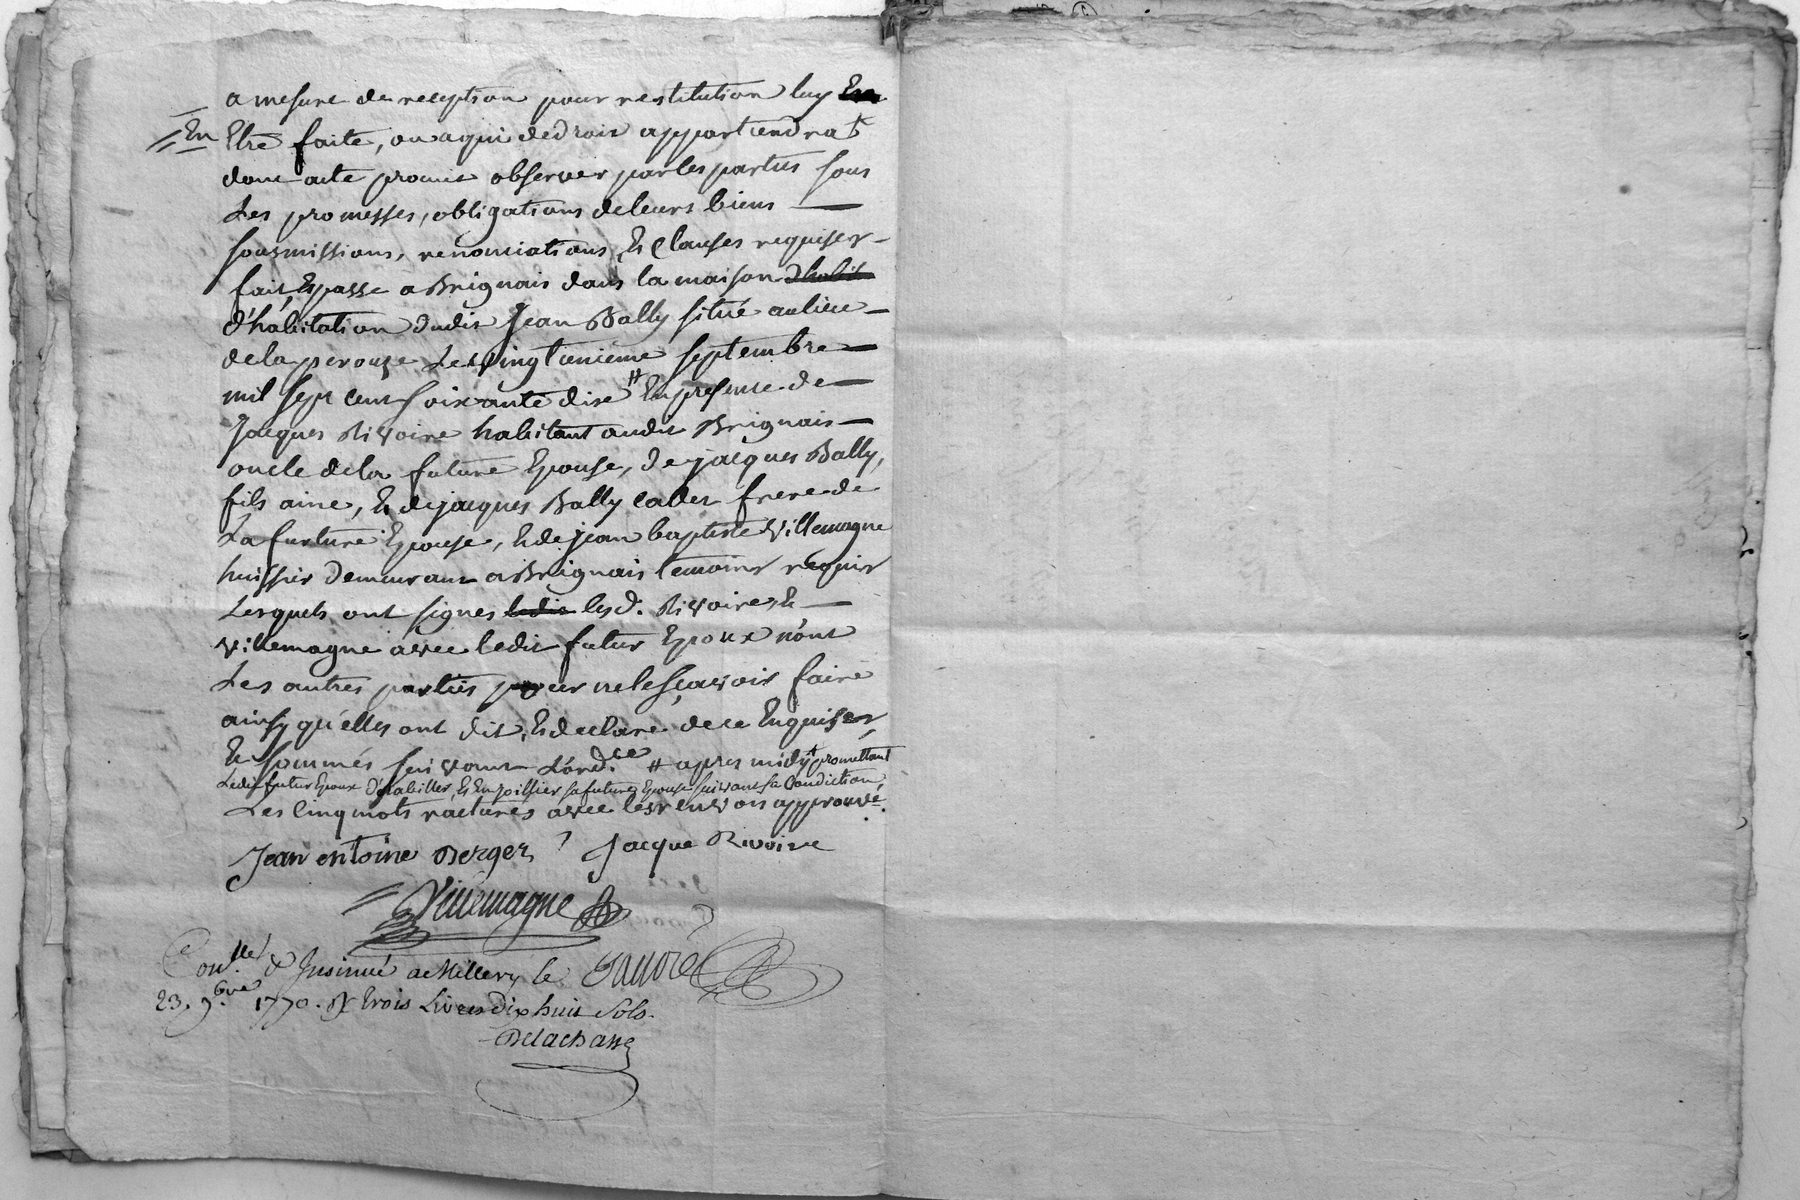 a mesure de reception pour restitution luy En
//En Etre faitte, ou a qui de droit appartiendra +
dont acte promis observer par les parties sous
Les promesses, obligations de leurs biens —
sousmissions, renonciations, Et Clauses requises —
fait Et passé a Brignais dans la maison d'habit
d'habitation dudit Jean Bally situé au lieu —
de la perouze Le Vingtienieme septembre —
mil sept cent soixante dixe # En presence de —
Jacques Rivoire habitant audit Brignais —
oncle de la future Epouse, de jacques Bally,
fils ainé, Et de jacques Bally cadet frere de
La furture Epouse, Et de jean baptiste Villemagne
huissier demeurant a Brignais temoins requis
Lesquels ont signes ledit les d. Rivoire, Et —
Villemagne avec ledit futur Epoux n'ont
Les autres parties pour ne le sçavoir faire
ainsy qu'elles ont dit, Et declaré de ce Enquises,
Et sommés suivant L'ord.ce # apres midy + promettant
Ledit futur Epoux d'habiller, Et Enjoillier sa future Epouse suivant sa Condiction
Les cinq mots racturés avec les renvois approuvé.
Jean entoine Berger Jacque Rivoire
Villemagne
Con.lle & Insinué a Millery le
23. 9.bre 1770. R trois Livres dix huit Sols.
Delachasse